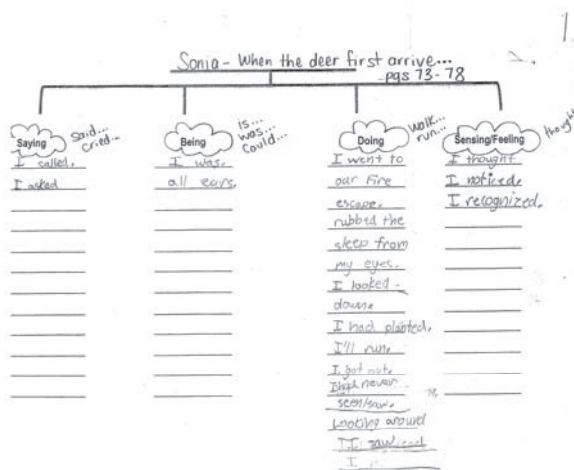 Sonia - When the deer first arrive...
pgs 73-78
Saying
Said...
cried...
I called.
I asked
Being
is...
was...
Could...
I was.
all ears.
Doing
walk...
run...
I went to
our fire
escape.
rubbed the
sleep from
my eyes.
I looked
down.
I had planted.
I'll run.
I got out.
I had never
seen/saw.
Looking around
I
Sensing/Feeling
thought
I thought
I noticed.
I recognized.